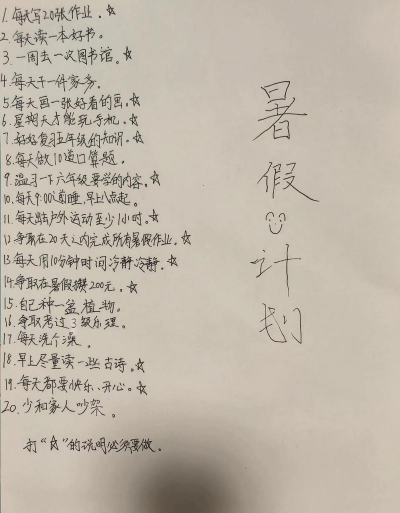 1. 每天写20张作业。☆
2. 每天读一本好书。
3. 一周去一次图书馆。☆
4. 每天干一件家务。
5. 每天画一张好看的画。☆
6. 星期天才能玩手机。☆
7. 好好复习五年级的知识。☆
8. 每天做10道口算题。
9. 温习一下六年级要学的内容。☆
10. 每天9:00道睡,早上八点起。
11. 每天出去户外运动至少1小时。☆
12. 争取在20天之内完成所有暑假作业。☆
13. 每天用10分钟时间冷静冷静。☆
14. 争取在暑假攒200元。☆
15. 自己种一盆植物。
16. 争取考过3级乐理。
17. 每天洗个澡。
18. 早上尽量读一些古诗。☆
19. 每天都要快乐、开心。☆
20. 少和家人吵架。
打“☆”的说明必须要做。
暑假计划